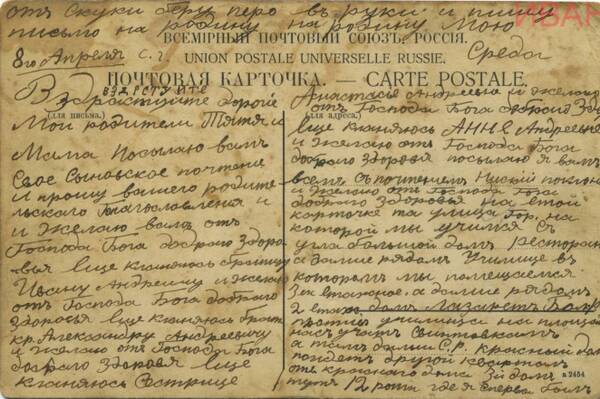 отъ скуки беру перо въ руки и пишу
письмо на родину на родину мою
ИВАН
ВСЕМІРНЫЙ ПОЧТОВЫЙ СОЮЗЪ. РОССІЯ.
8го Апреля с. г.
UNION POSTALE UNIVERSELLE RUSSIE.
Среда
ПОЧТОВАЯ КАРТОЧКА. — CARTE POSTALE.
Здраствуйте дорогіе
(для письма.)
Мои родители Тятя и
Мама Посылаю вамъ
Свое Сыновское почтение
и прошу вашего родите
льского Благославления и
и желаю вамъ отъ
Господа Бога добраго Здоро
вья еще кланяюсь братцу
Ивану Андреичу и желаю
отъ Господа Бога добраго
Здоровья еще кланяюсь
Александру Андреевичу
и желаю отъ Господа Бога
добраго Здоровья еще
кланяюсь Сестрице
Анастасье Андреевне и желаю
отъ Господа Бога добраго Здо
(для адреса.)
еще кланяюсь АННЕ Андреевне
и желаю отъ Господа Бога
добраго Здоровья посылаю я вамъ
всемъ съ почтениемъ Нискій поклон
и желаю отъ Господа Бога
добраго Здоровья на етой
карточке та улица на
которой мы учимся съ
угла большой домъ Ресторан
а далше рядомъ Училище въ
которомъ мы помещаемся
а далше рядомъ
2 етаж. домъ Лазаретъ
училища на площад
насъ учатъ
а тамъ далше Красный дом
пойдетъ другой кварталъ
отъ краснаго дома 3й домъ
тутъ 12 рота где я сперва былъ
в 2454